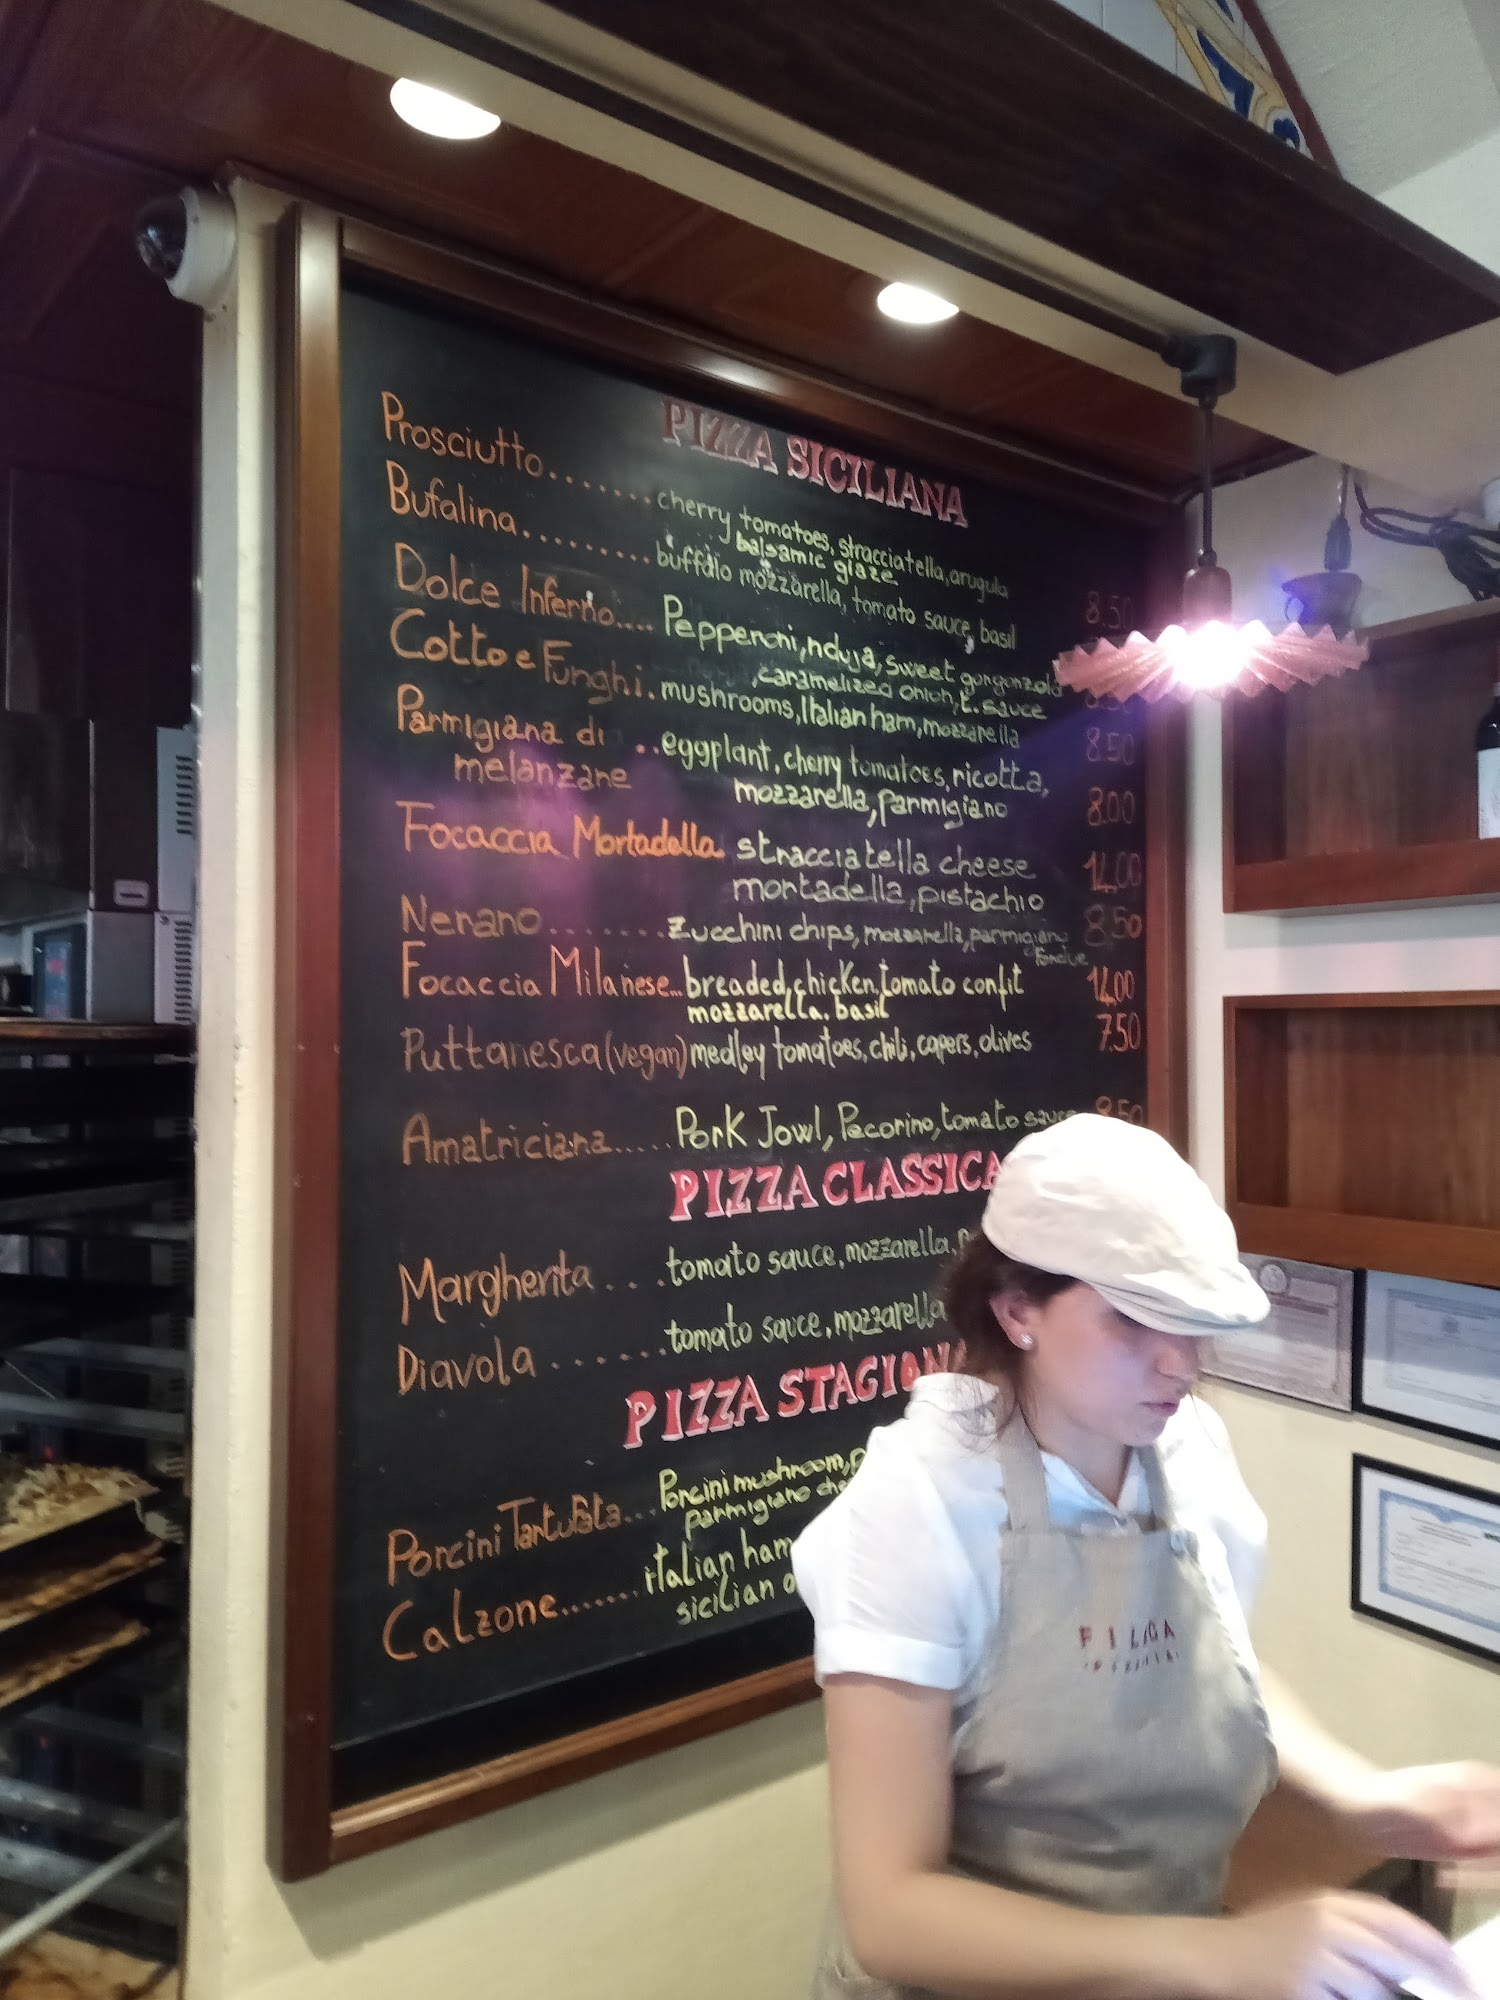 PIZZA SICILIANA
Prosciutto....... cherry tomatoes, stracciatella, arugula
balsamic glaze
Bufalina......... buffalo mozzarella, tomato sauce, basil 8.50
Dolce Inferno.... Pepperoni, nduja, sweet gorgonzola
, caramelized onion, t. sauce
Cotto e Funghi. mushrooms, Italian ham, mozzarella 8.50
Parmigiana di .. eggplant, cherry tomatoes, ricotta, 8.00
melanzane mozzarella, parmigiano
Focaccia Mortadella stracciatella cheese 14,00
mortadella, pistachio
Nerano....... Zucchini chips, mozzarella, parmigiano 8.50
Fondue
Focaccia Milanese... breaded, chicken, tomato confit 14,00
mozzarella, basil
Puttanesca (vegan) medley tomatoes, chili, capers, olives 7.50
Amatriciana..... Pork Jowl, Pecorino, tomato sauce 8.50
PIZZA CLASSICA
Margherita ... tomato sauce, mozzarella,
Diavola ...... tomato sauce, mozzarella
PIZZA STAGION
Porcini Tartufata... Porcini mushroom,
parmigiano
Calzone....... italian ham
sicilian